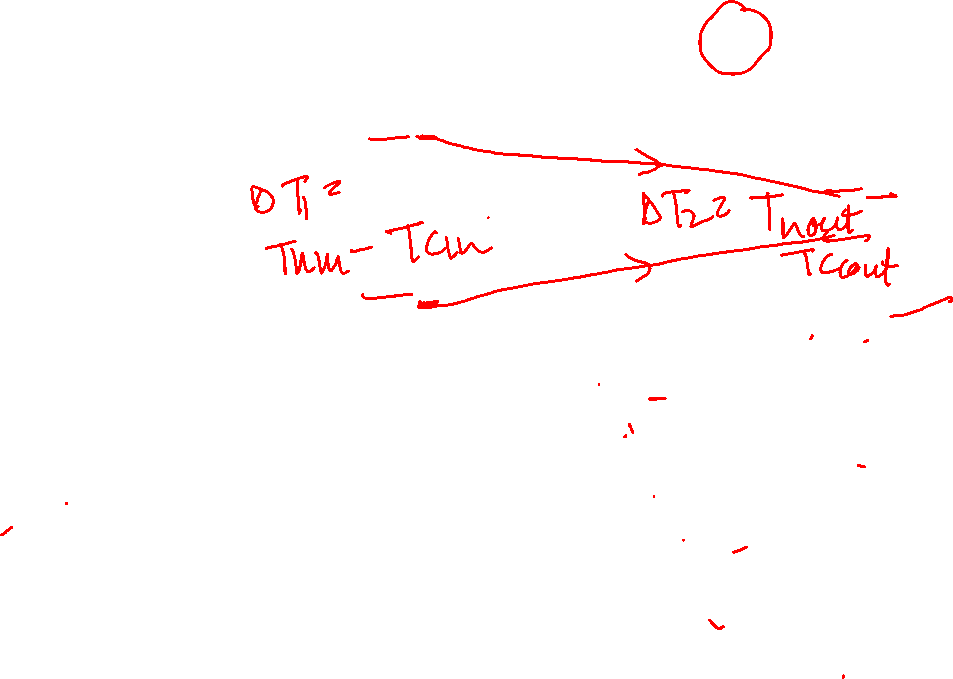 ΔT1 =
Thin - Tcin
ΔT2 = Thout -
Tcout